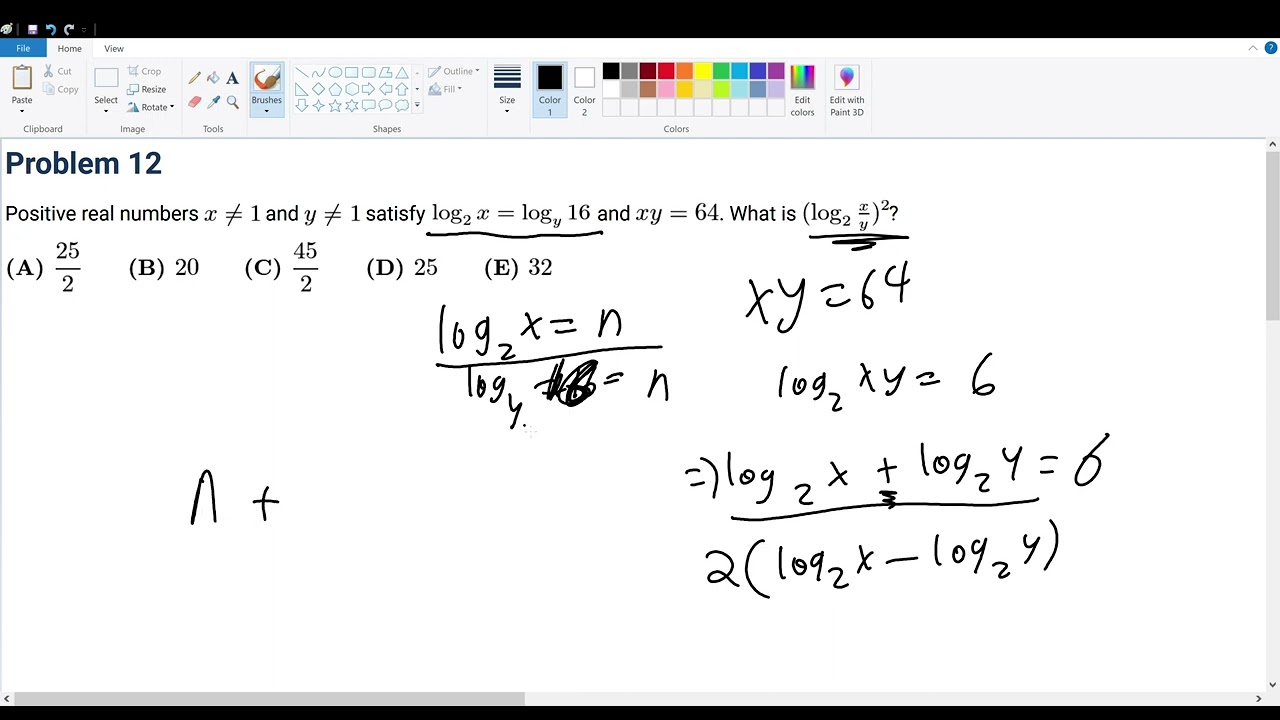 File Home View
Paste Cut Copy Select Crop Resize Rotate A Brushes Outline Fill Size Color 1 Color 2 Edit colors Edit with Paint 3D
Clipboard Image Tools Shapes Colors
Problem 12
Positive real numbers x ≠ 1 and y ≠ 1 satisfy log₂ x = log_y 16 and xy = 64. What is (log₂ x/y)²?
(A) 25/2 (B) 20 (C) 45/2 (D) 25 (E) 32
xy = 64
log₂ x = n
log_y = n
log₂ xy = 6
=) log₂ x + log₂ y = 6
n +
2(log₂ x − log₂ y)